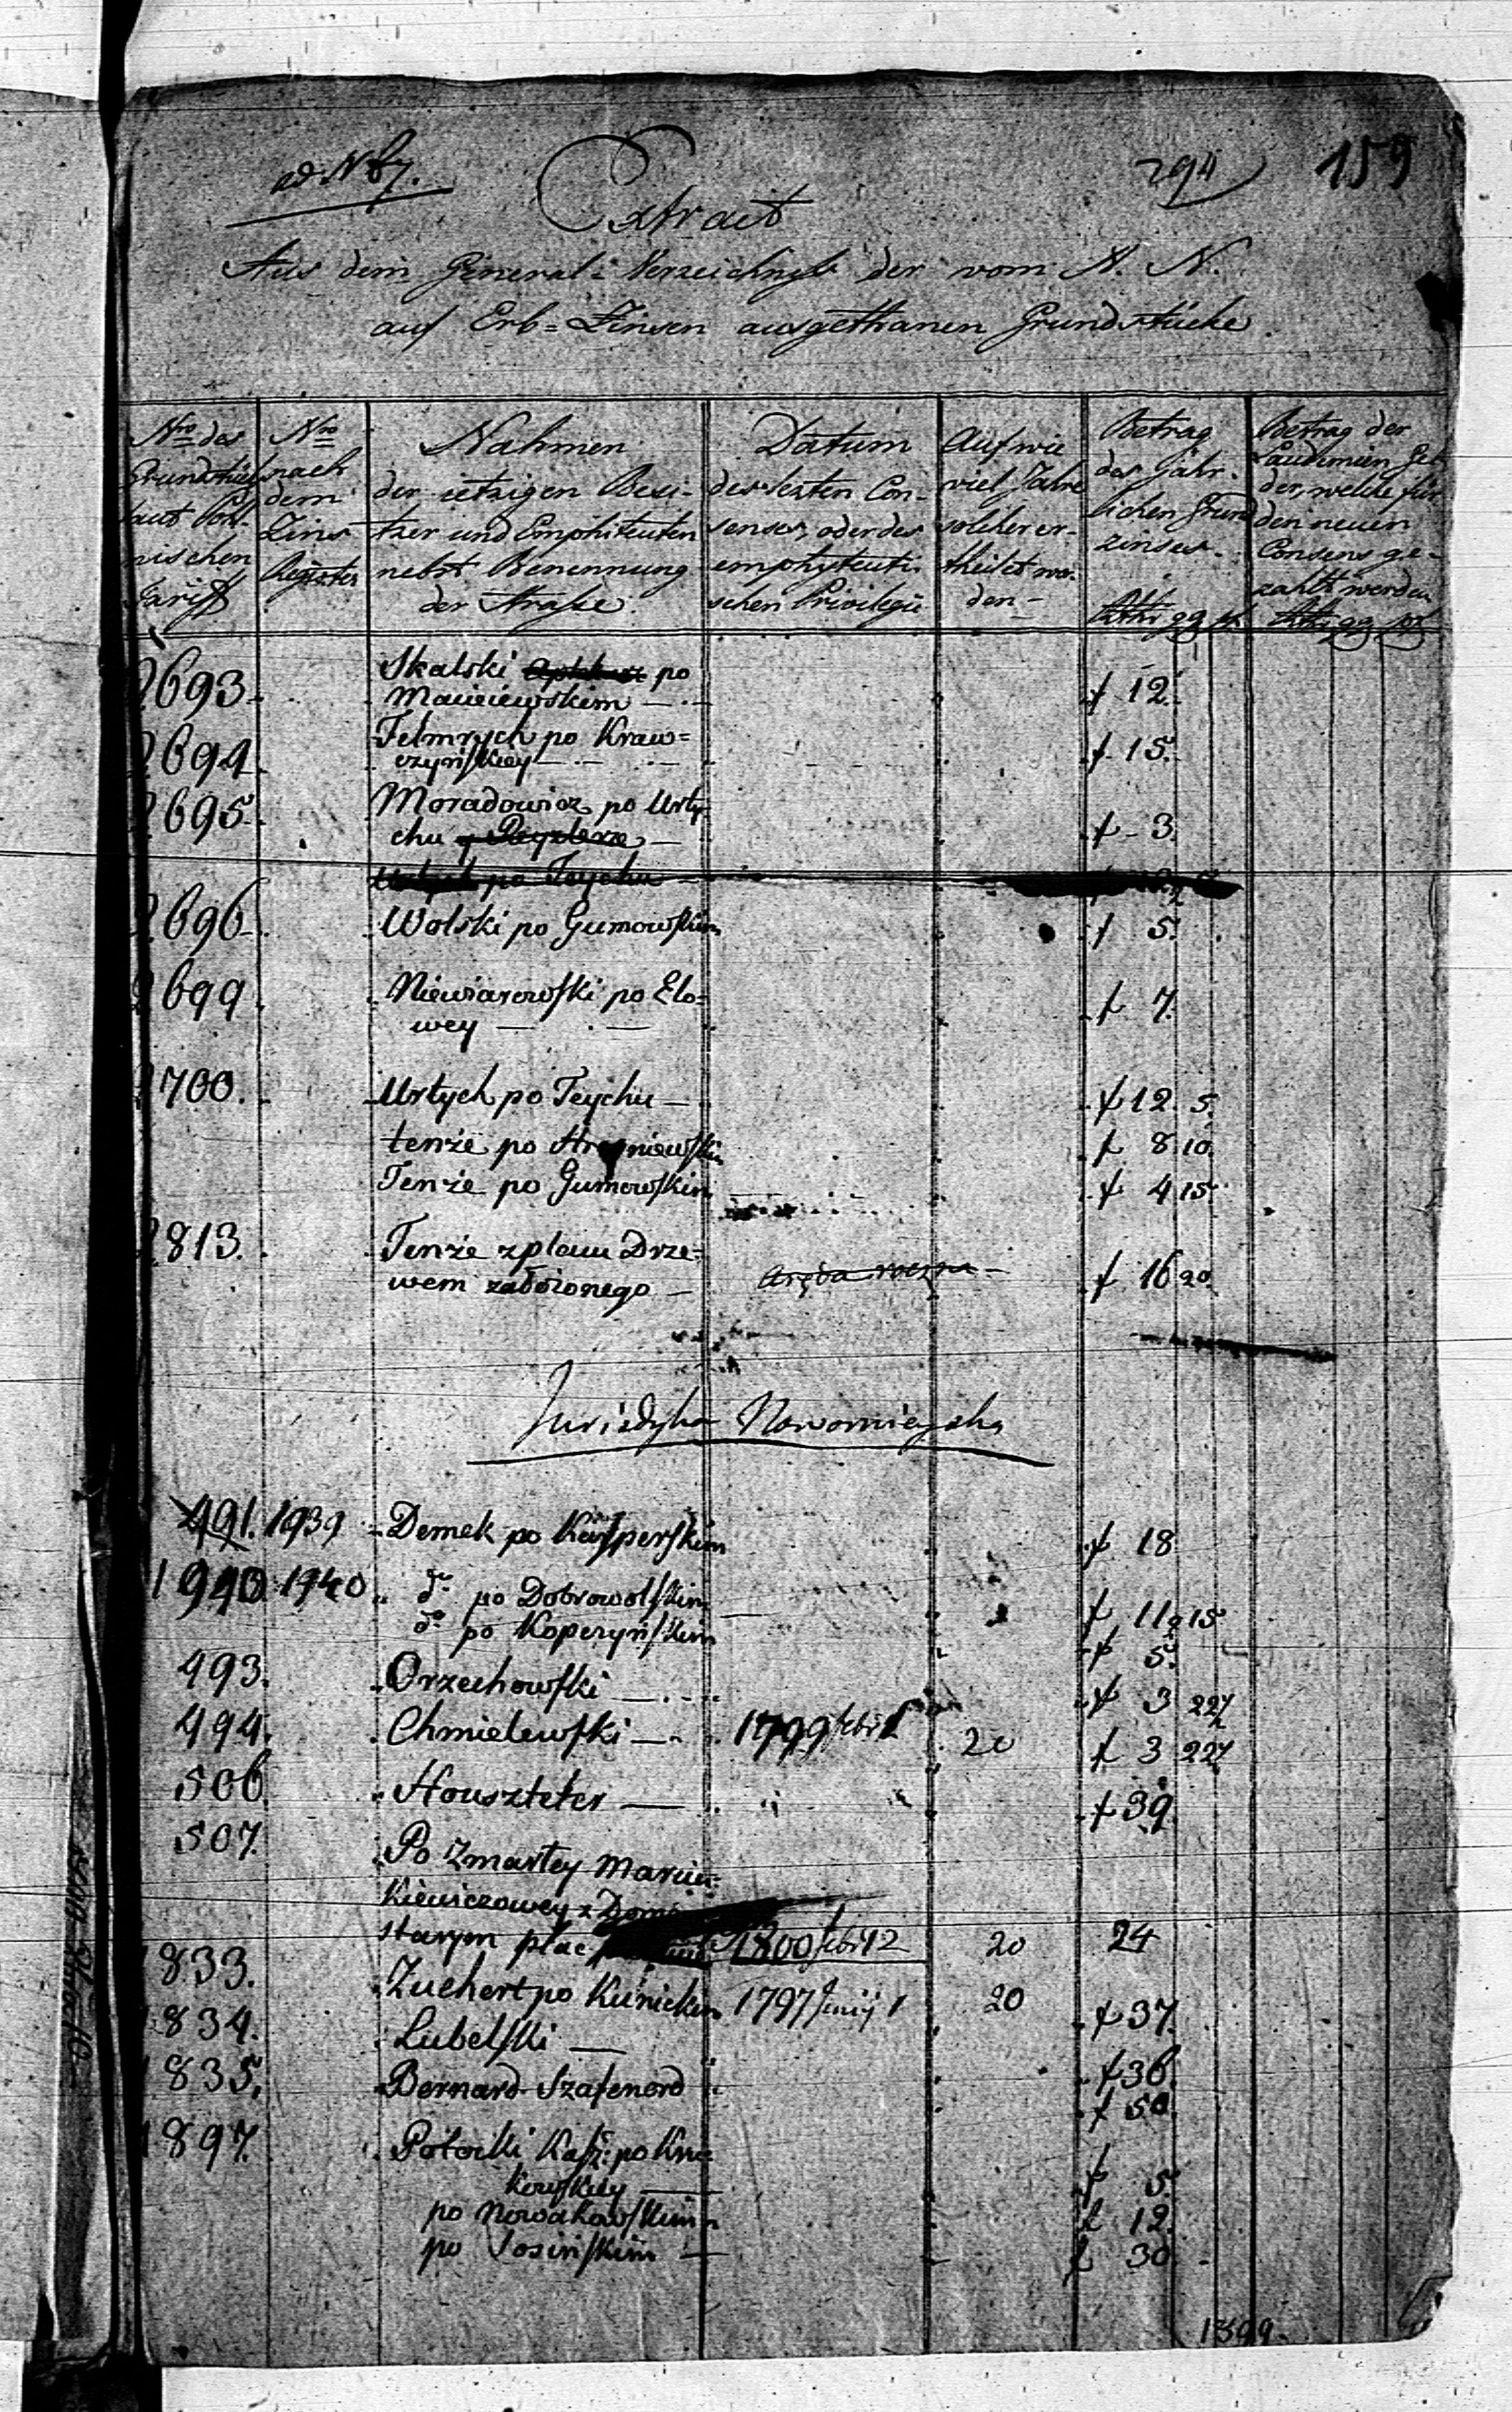 ad N 67.
294
159
Extract
Aus dem General-Verzeichniß der vom A. N.
auf Erb=Zinsen ausgethanen Grundstücke
Nro des
Grundstücks
laut Pohl-
nischen
Tariff
Nro
nach
dem
Zins
Register
Nahmen
der ietzigen Besi-
tzer und Emphiteuten
nebst Benennung
der Straße.
Datum
des lezten Con-
senses, oder des
emphyteuti-
schen Privilegii
Auf wie
viel Jahre
solcher er-
theilet wor-
den-
Betrag
des jähr-
lichen Grund
zinses-
Rthr gg pf
Betrag der
Laudemien Gel-
der, welche für
den neuen
Consens ge-
zahlt werden
Rthr gg pf
2693. Skalski po
Macieiewskim f 12.
2694. Felmrych po Kraw=
czyńskiey f 15.
2695. Moradowicz po Urty
chu f 3
po Teychu
2696. Wolski po Gumowskim f 5.
2699. Niewiarowski po Elo=
wey f 7.
2700. Urtych po Teychu f 12. 5.
tenże po f 8 10.
Tenże po Gumowskim f 4 15
2813. Tenże z placu Drze=
wem założonego f 16 20
Jurisdyka Nowomieyska
491. 1939 Demek po Kasperskim f 18
1940 1940 do po Dobrowolskim f 11 15
do po Koperyńskim f 5.
493. Orzechowski f 3 22½
494. Chmielewski 1799 febr 1 20 f 3 22½
506 Houszteter f 39.
507. Po Zmarłey Marcin-
kiewiczowey z
starym plac 1800 febr 12 20 24
1833. Zuchert po Kunickim 1797 Junij 1 20 f 37.
1834. Lubelski f 36.
1835. Bernard Szafenord f 50.
1897. Potocki Kasz: po
f 5.
po Nowakowskim f 12.
po Josińskim f 30
1399.